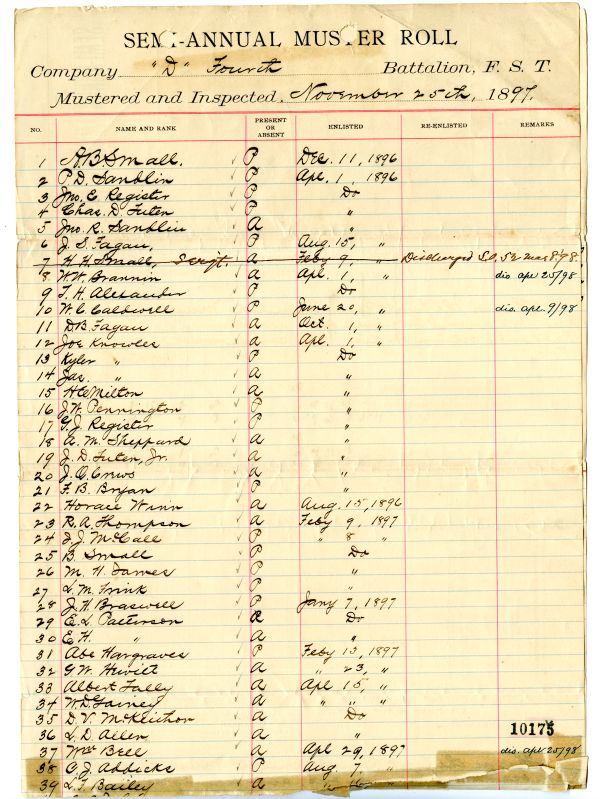 SEMI-ANNUAL MUSTER ROLL
Company "D" Fourth Battalion, F. S. T.
Mustered and Inspected, November 25th, 1897.
NO. NAME AND RANK PRESENT OR ABSENT ENLISTED RE-ENLISTED REMARKS
1 A.B. Small. P Dec. 11, 1896
2 P.D. Sanblin P Apl. 1, 1896
3 Jno. E. Register P Do
4 Chas. D. Futen P "
5 Jno. R. Sanblin A "
6 J. S. Fagan, P Aug. 15, "
7 H. H. Small, Sergt. A Feby 9, " Discharged S.O. 52 Mar 8/98
8 W.W. Brannin A Apl. 1, " dis. apr 25/98
9 T. H. Alexander P Do
10 W. C. Caldwell P June 20, " dis. apr. 9/98
11 D.B. Fagan A Oct. 1, "
12 Joe Knowles A Apl. 1, "
13 Kyler " P Do
14 Jas. " A "
15 H.C. Milton A "
16 J.W. Pennington P "
17 G. J. Register P "
18 A. M. Sheppard A "
19 J. D. Futen, Jr. A "
20 J. O. Crews A "
21 F. B. Bryan P "
22 Horace Winn A Aug. 15, 1896
23 R. A. Thompson A Feby 9, 1897
24 J. J. McCall P " 8 "
25 B. Small P Do
26 M. H. James P "
27 L. M. Frink P "
28 J. H. Braswell P Jany 7, 1897
29 E. L. Patterson Do
30 E. H. " A "
31 Abe Hargraves P Feby 13, 1897
32 G. W. Hewitt A " 23, "
33 Albert Lally A Apl 15, "
34 W.D. Gainey A " " "
35 D. V. McKeithon A Do
36 L. D. Allen A " 10175
37 Wm Bell A Apl 29, 1897 dis. apr 25/98
38 C. J. Addicks P Aug. 7, "
39 L. J. Bailey A " "